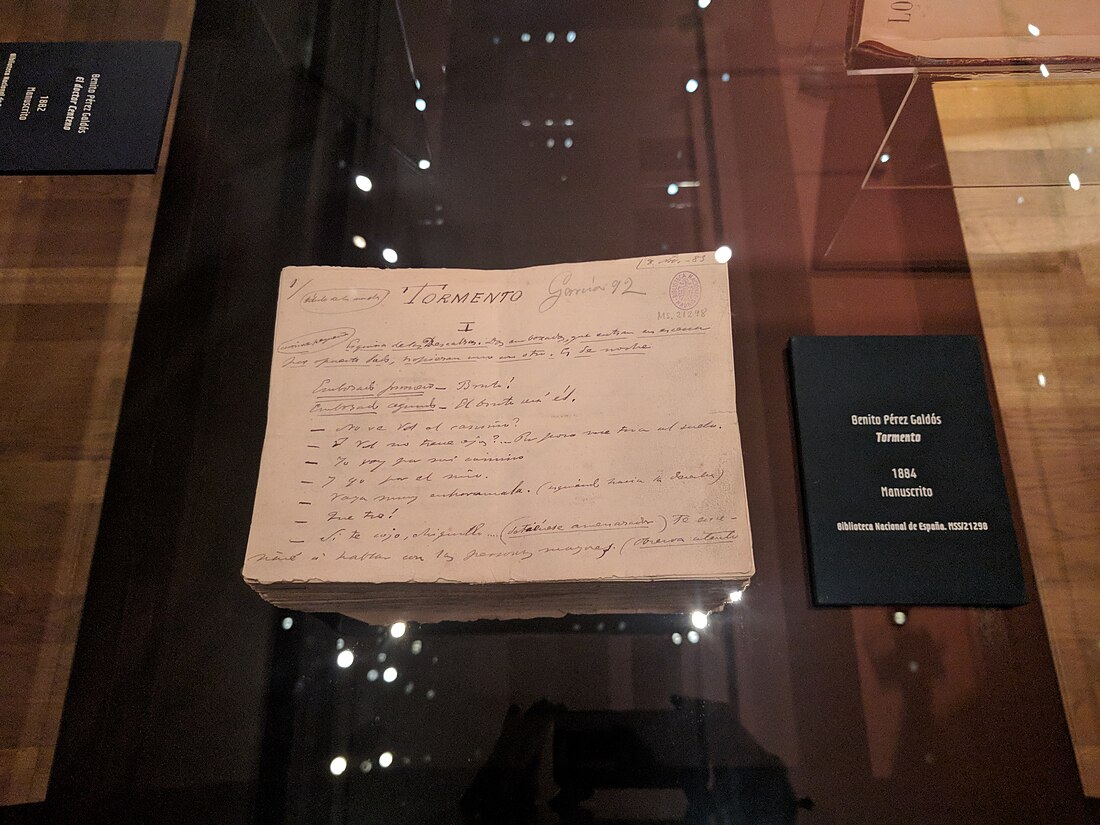 Benito Pérez Galdós
El doctor Centeno
1882
Manuscrito
LO
1/
TORMENTO
García 92
Ms. 21298
I
Esquina de las Descalzas. Dos embozados, que entran en escena
por opuesto lado, tropiezan uno con otro. Es de noche
Embozado primero — Bruto!
Embozado segundo — El bruto será él.
— No ve Vd el camino?
— Y Vd no tiene ojos?.. Por poco me tira al suelo.
— Yo voy por mi camino
— Y yo por el mío.
— Vaya muy enhoramala. (siguiendo hacia la derecha)
— Que tío!
— Si te cojo, chiquillo... (detiénese amenazador) Te ense-
ñaré á hablar con las personas mayores. (observa atento
Benito Pérez Galdós
Tormento
1884
Manuscrito
Biblioteca Nacional de España. MSS/21298